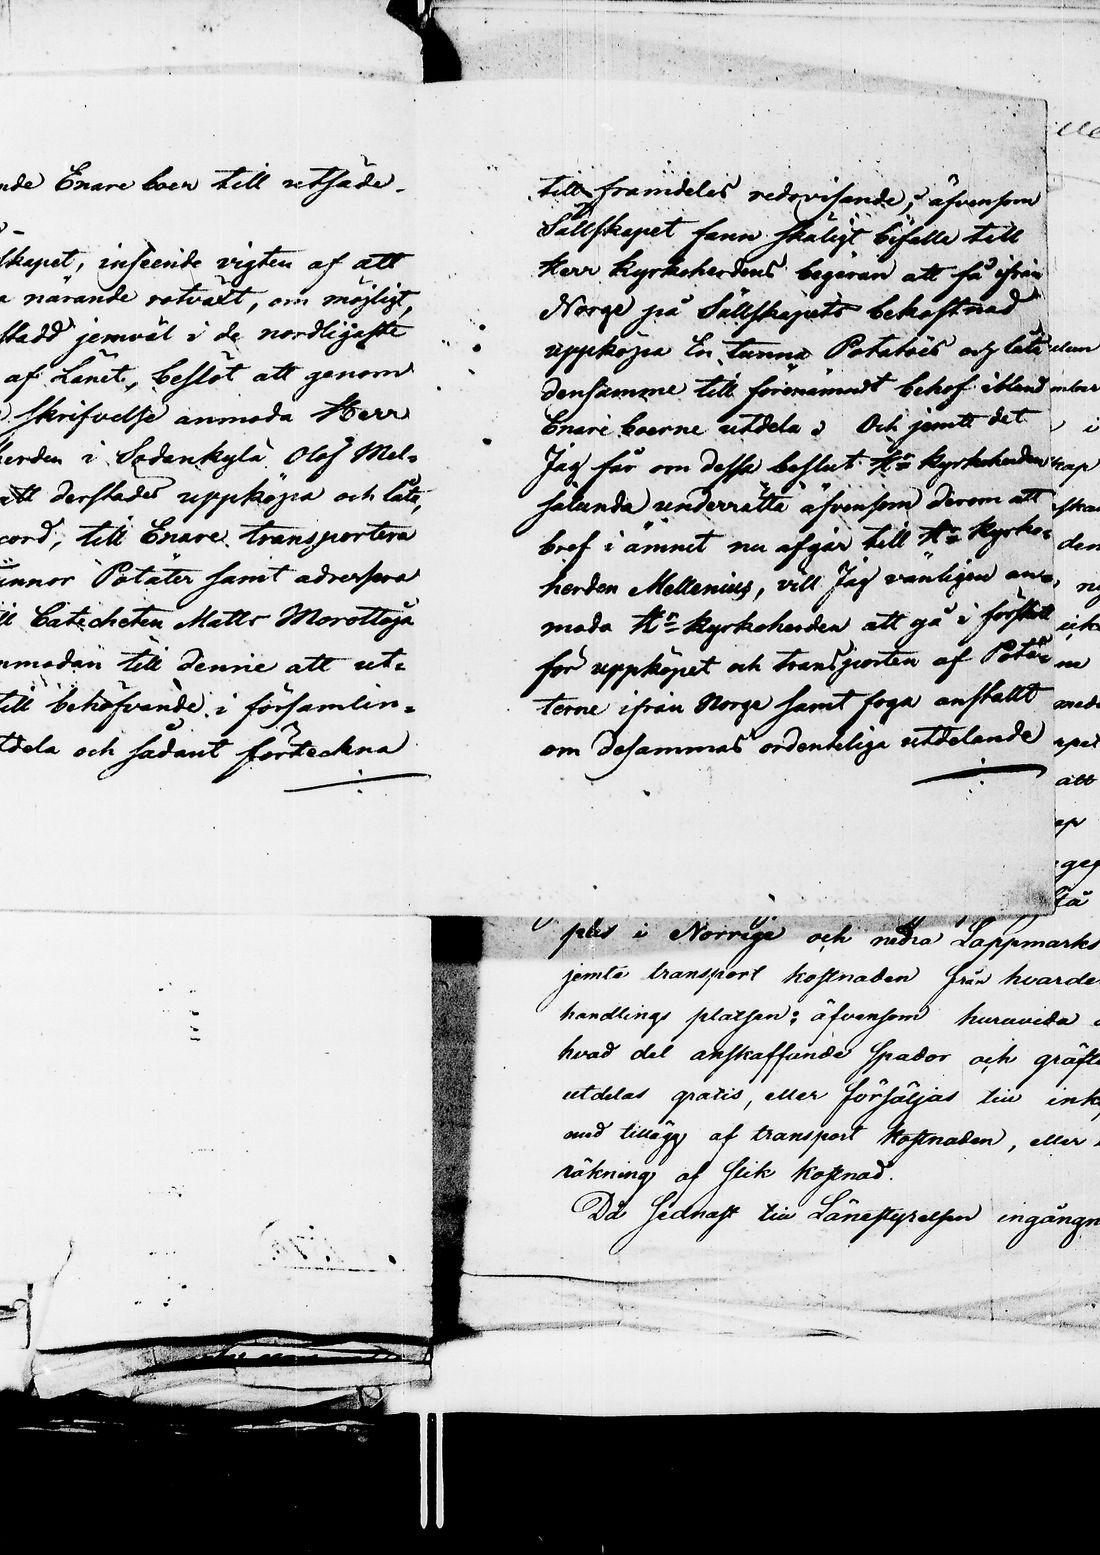 nde Enare boer till utsäde.
skapet, inseende vigten af att
a närande rotväxt, om möjligt,
stadd jemväl i de nordligaste
af Länet, beslöt att genom
skrifvelse anmoda Herr
herden i Sodankylä Olof Mel=
att derstädes uppköpa och låta,
cord, till Enare transportera
unnor Potäter samt adressera
ill Catecheten Matts Morottaja
nmodan till denne att ut=
till behöfvande i församlin=
tdela och sådant förteckna
till framdeles redovisande; äfvensom
Sällskapet fann skäligt bifalla till
Herr Kyrkoherdens begäran att få ifrån
Norge på Sällskapets bekostnad
uppköpa En tunna Potatoes och låta
densamme till förenämndt behof ibland
Enare boerne utdela; Och jemte det
Jag får om dessa beslut Hr Kyrkoherden
sålunda underrätta äfvensom derom att
bref i ämnet nu afgår till Hr Kyrko=
herden Mellenius, vill Jag vänligen an=
moda Hr Kyrkoherden att gå i förskott
för uppköpet och transporten af Potä=
terne ifrån Norge samt foga anstallt
om desammas ordenteliga utdelande
i Norrige och nedra Lappmarks
jemte transport kostnaden från hvarde
handlings platsen; äfvensom huruvida
hvad del anskaffande Spador och gräft
utdelas gratis, eller försäljas till ink
med tillägg af transport kostnaden, eller
räkning af slik kostnad.
Då sednast till Länestyrelsen ingångn